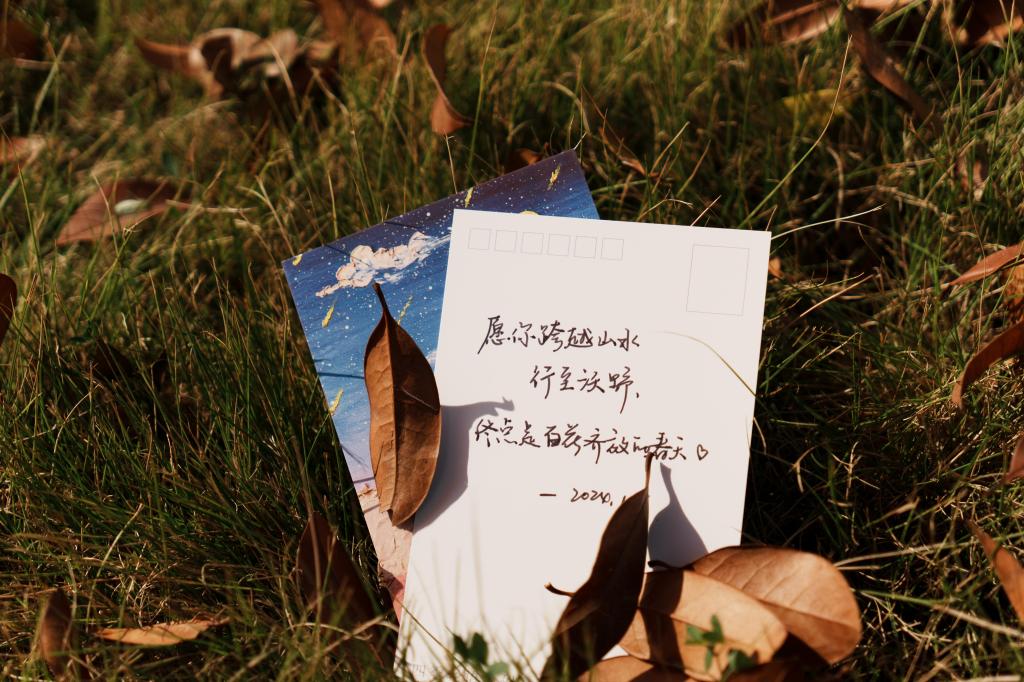 愿你跨越山水
行至沃野，
终点是百花齐放的春天♡
— 2020.